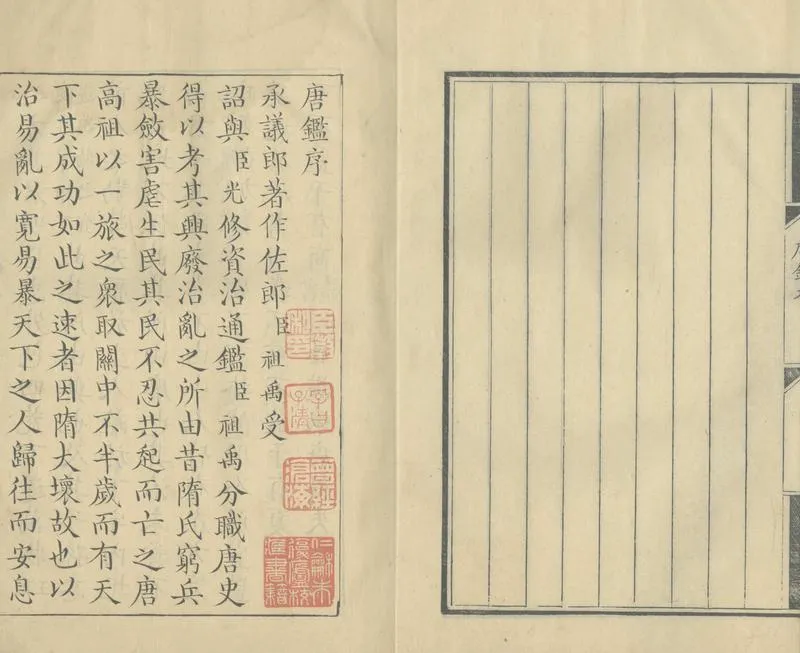 唐鑑
唐鑑序
承議郎著作佐郎臣祖禹受
詔與臣光修資治通鑑臣祖禹分職唐史
得以考其興廢治亂之所由昔隋氏窮兵
暴斂害虐生民其民不忍共起而亡之唐
高祖以一旅之衆取關中不半歲而有天
下其成功如此之速者因隋大壞故也以
治易亂以寬易暴天下之人歸往而安息
字曰子清
仁龢朱復廬校藏書籍